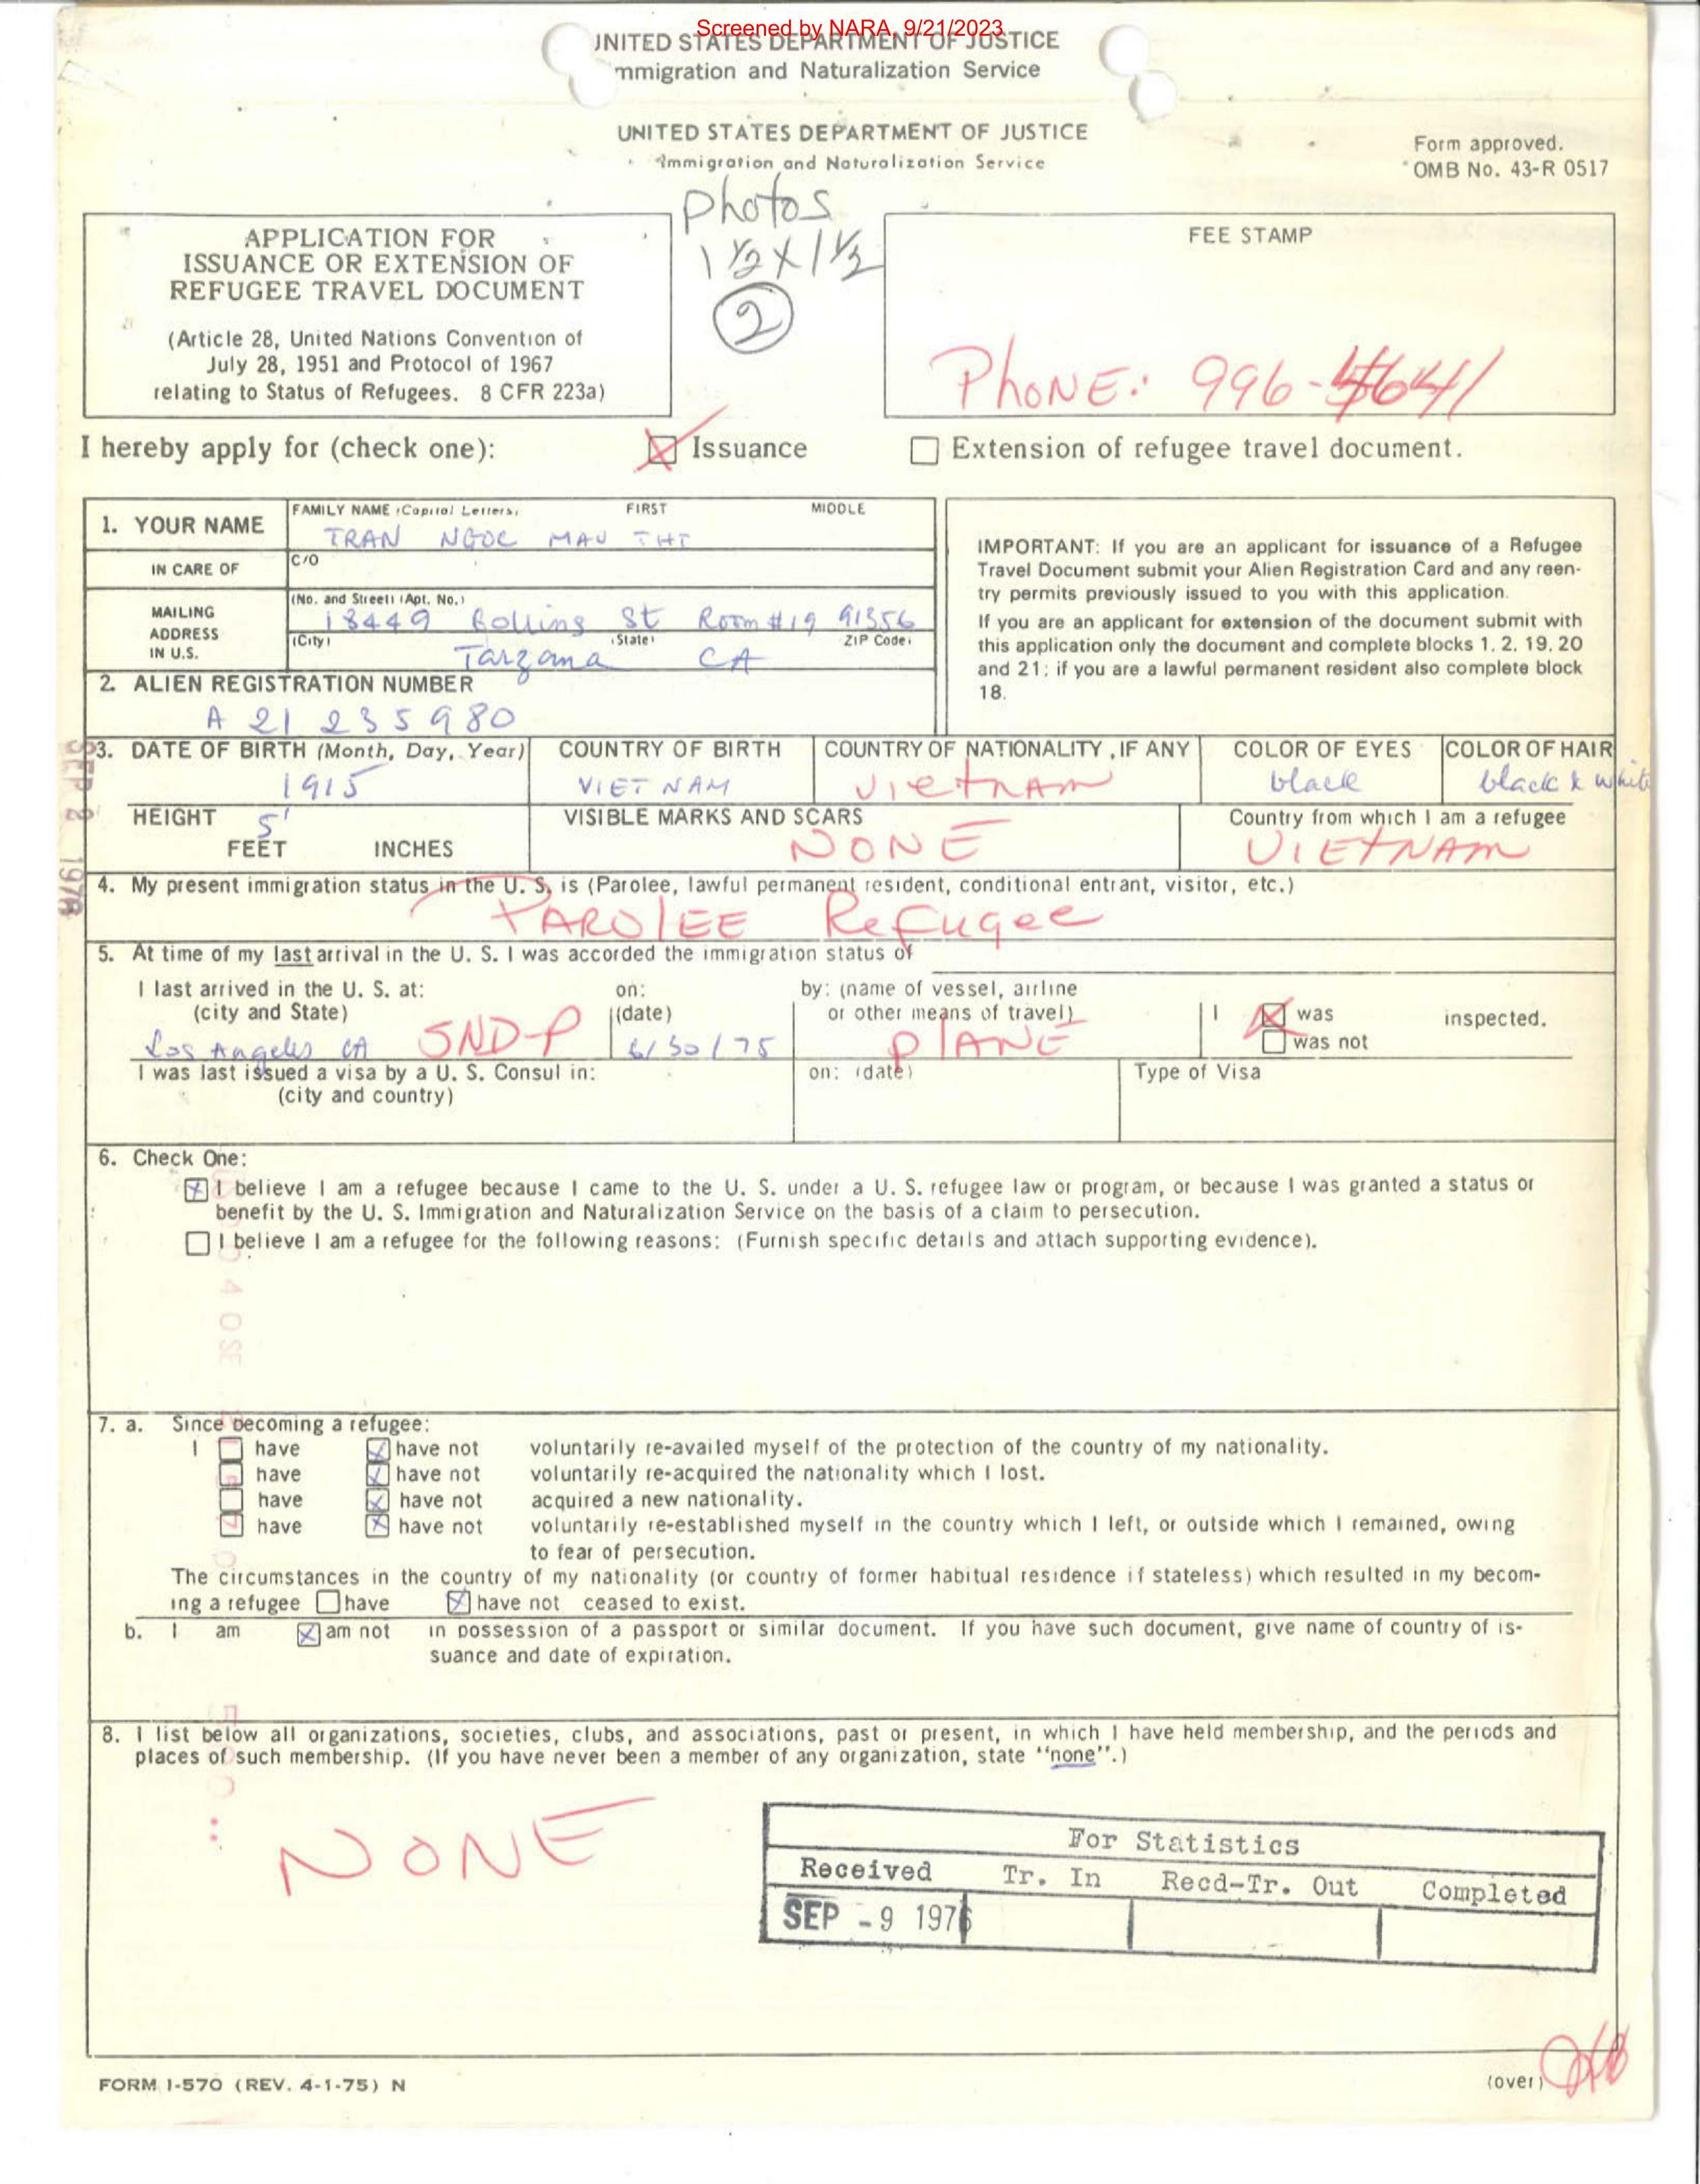 Screened by NARA, 9/21/2023
UNITED STATES DEPARTMENT OF JUSTICE
mmigration and Naturalization Service
UNITED STATES DEPARTMENT OF JUSTICE
Immigration and Naturalization Service
Form approved.
OMB No. 43-R 0517
Photos
1 1/2 X 1 1/2
2
APPLICATION FOR
ISSUANCE OR EXTENSION OF
REFUGEE TRAVEL DOCUMENT
(Article 28, United Nations Convention of
July 28, 1951 and Protocol of 1967
relating to Status of Refugees. 8 CFR 223a)
FEE STAMP
PhONE: 996-5641
I hereby apply for (check one): ☒ Issuance ☐ Extension of refugee travel document.
1. YOUR NAME
FAMILY NAME (Capital Letters) FIRST MIDDLE
TRAN NGOC MAU THI
IN CARE OF
C/O
MAILING ADDRESS IN U.S.
(No. and Street) (Apt. No.)
18449 Collins St Room #19 91356
(City) (State) ZIP Code)
Tarzana CA
2. ALIEN REGISTRATION NUMBER
A 21 235980
IMPORTANT: If you are an applicant for issuance of a Refugee
Travel Document submit your Alien Registration Card and any reen-
try permits previously issued to you with this application.
If you are an applicant for extension of the document submit with
this application only the document and complete blocks 1, 2, 19, 20
and 21; if you are a lawful permanent resident also complete block
18.
3. DATE OF BIRTH (Month, Day, Year) COUNTRY OF BIRTH COUNTRY OF NATIONALITY, IF ANY COLOR OF EYES COLOR OF HAIR
1915 VIET NAM VietNAM black black & white
HEIGHT 5' VISIBLE MARKS AND SCARS Country from which I am a refugee
FEET INCHES NONE VIETNAM
4. My present immigration status in the U. S. is (Parolee, lawful permanent resident, conditional entrant, visitor, etc.)
PAROLEE Refugee
5. At time of my last arrival in the U. S. I was accorded the immigration status of
I last arrived in the U. S. at: on: by: (name of vessel, airline
(city and State) (date) or other means of travel) I ☒ was inspected.
Los Angeles CA SND-P 6/30/75 PLANE ☐ was not
I was last issued a visa by a U. S. Consul in: on: (date) Type of Visa
(city and country)
6. Check One:
☒ I believe I am a refugee because I came to the U. S. under a U. S. refugee law or program, or because I was granted a status or
benefit by the U. S. Immigration and Naturalization Service on the basis of a claim to persecution.
☐ I believe I am a refugee for the following reasons: (Furnish specific details and attach supporting evidence).
7. a. Since becoming a refugee:
I ☐ have ☒ have not voluntarily re-availed myself of the protection of the country of my nationality.
☐ have ☒ have not voluntarily re-acquired the nationality which I lost.
☐ have ☒ have not acquired a new nationality.
☐ have ☒ have not voluntarily re-established myself in the country which I left, or outside which I remained, owing
to fear of persecution.
The circumstances in the country of my nationality (or country of former habitual residence if stateless) which resulted in my becom-
ing a refugee ☐ have ☒ have not ceased to exist.
b. I am ☒ am not in possession of a passport or similar document. If you have such document, give name of country of is-
suance and date of expiration.
8. I list below all organizations, societies, clubs, and associations, past or present, in which I have held membership, and the periods and
places of such membership. (If you have never been a member of any organization, state "none".)
NONE
For Statistics
Received Tr. In Recd-Tr. Out Completed
SEP -9 1976
FORM I-570 (REV. 4-1-75) N
(over)